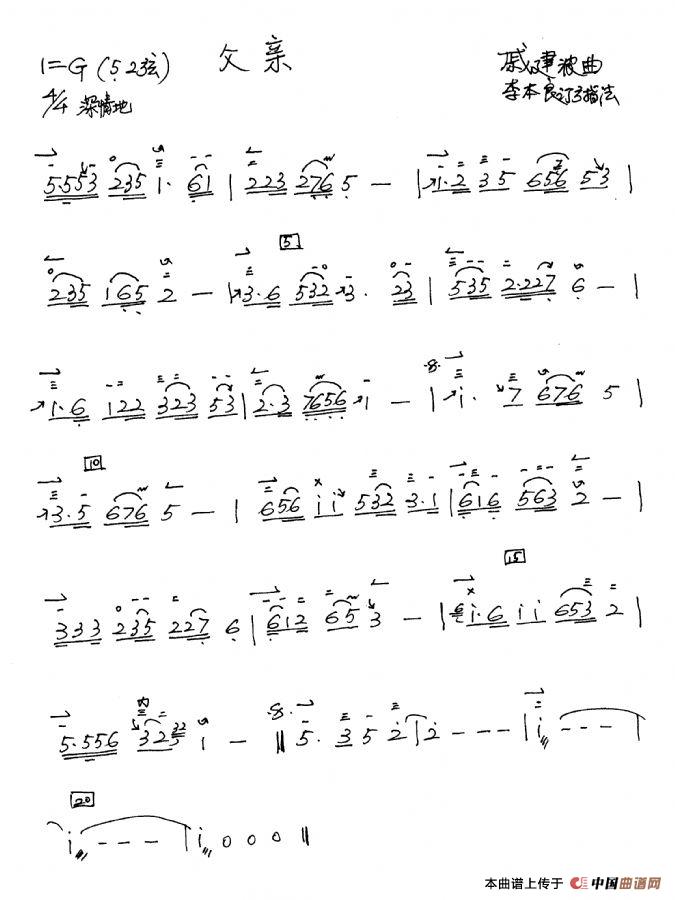 父亲
1=G (5 2弦)
戚建波曲
4/4 深情地
李本良订弓指法
5·553 235 1· 61 | 223 276 5 — | 1·2 35 656 53 |
5
235 165 2 — | 3·6 532 3· 23 | 535 2·227 6 — |
·8·
1·6 122 323 53 | 2·3 7656 1 — | i· 7 676 5 |
10
3·5 676 5 — | 656 i i 532 3·1 | 616 563 2 — |
15
333 235 227 6 | 612 65 3 — | i·6 i i 653 2 |
·8·
5·556 325 1 — ‖ 5· 3 5 2 | 2 - - - | i - - - |
20
i - - - | i 0 0 0 ‖
本曲谱上传于 中国曲谱网